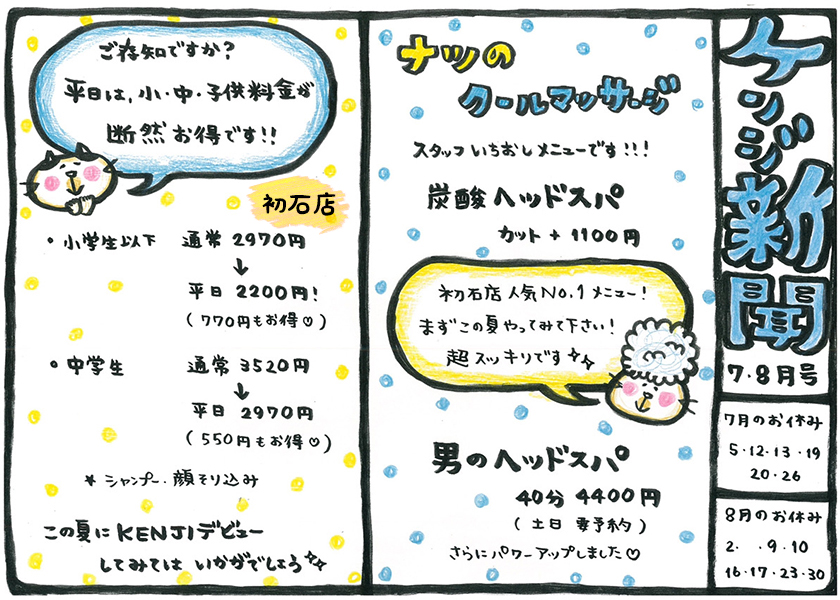 ケンジ新聞
7・8月号
7月のお休み
5・12・13・19
20・26
8月のお休み
2. ・9・10
16・17・23・30
ナツの
クールマッサージ
スタッフいちおしメニューです!!!
炭酸ヘッドスパ
カット + 1100円
初石店人気No.1メニュー!
まずこの夏やってみて下さい!
超スッキリです
男のヘッドスパ
40分 4400円
(土日 要予約)
さらにパワーアップしました♡
ご存知ですか?
平日は、小・中・子供料金が
断然お得です!!
初石店
・小学生以下 通常 2970円
↓
平日 2200円!
(770円もお得♡)
・中学生 通常 3520円
↓
平日 2970円
(550円もお得♡)
* シャンプー・顔そり込み
この夏にKENJIデビュー
してみてはいかがでしょう